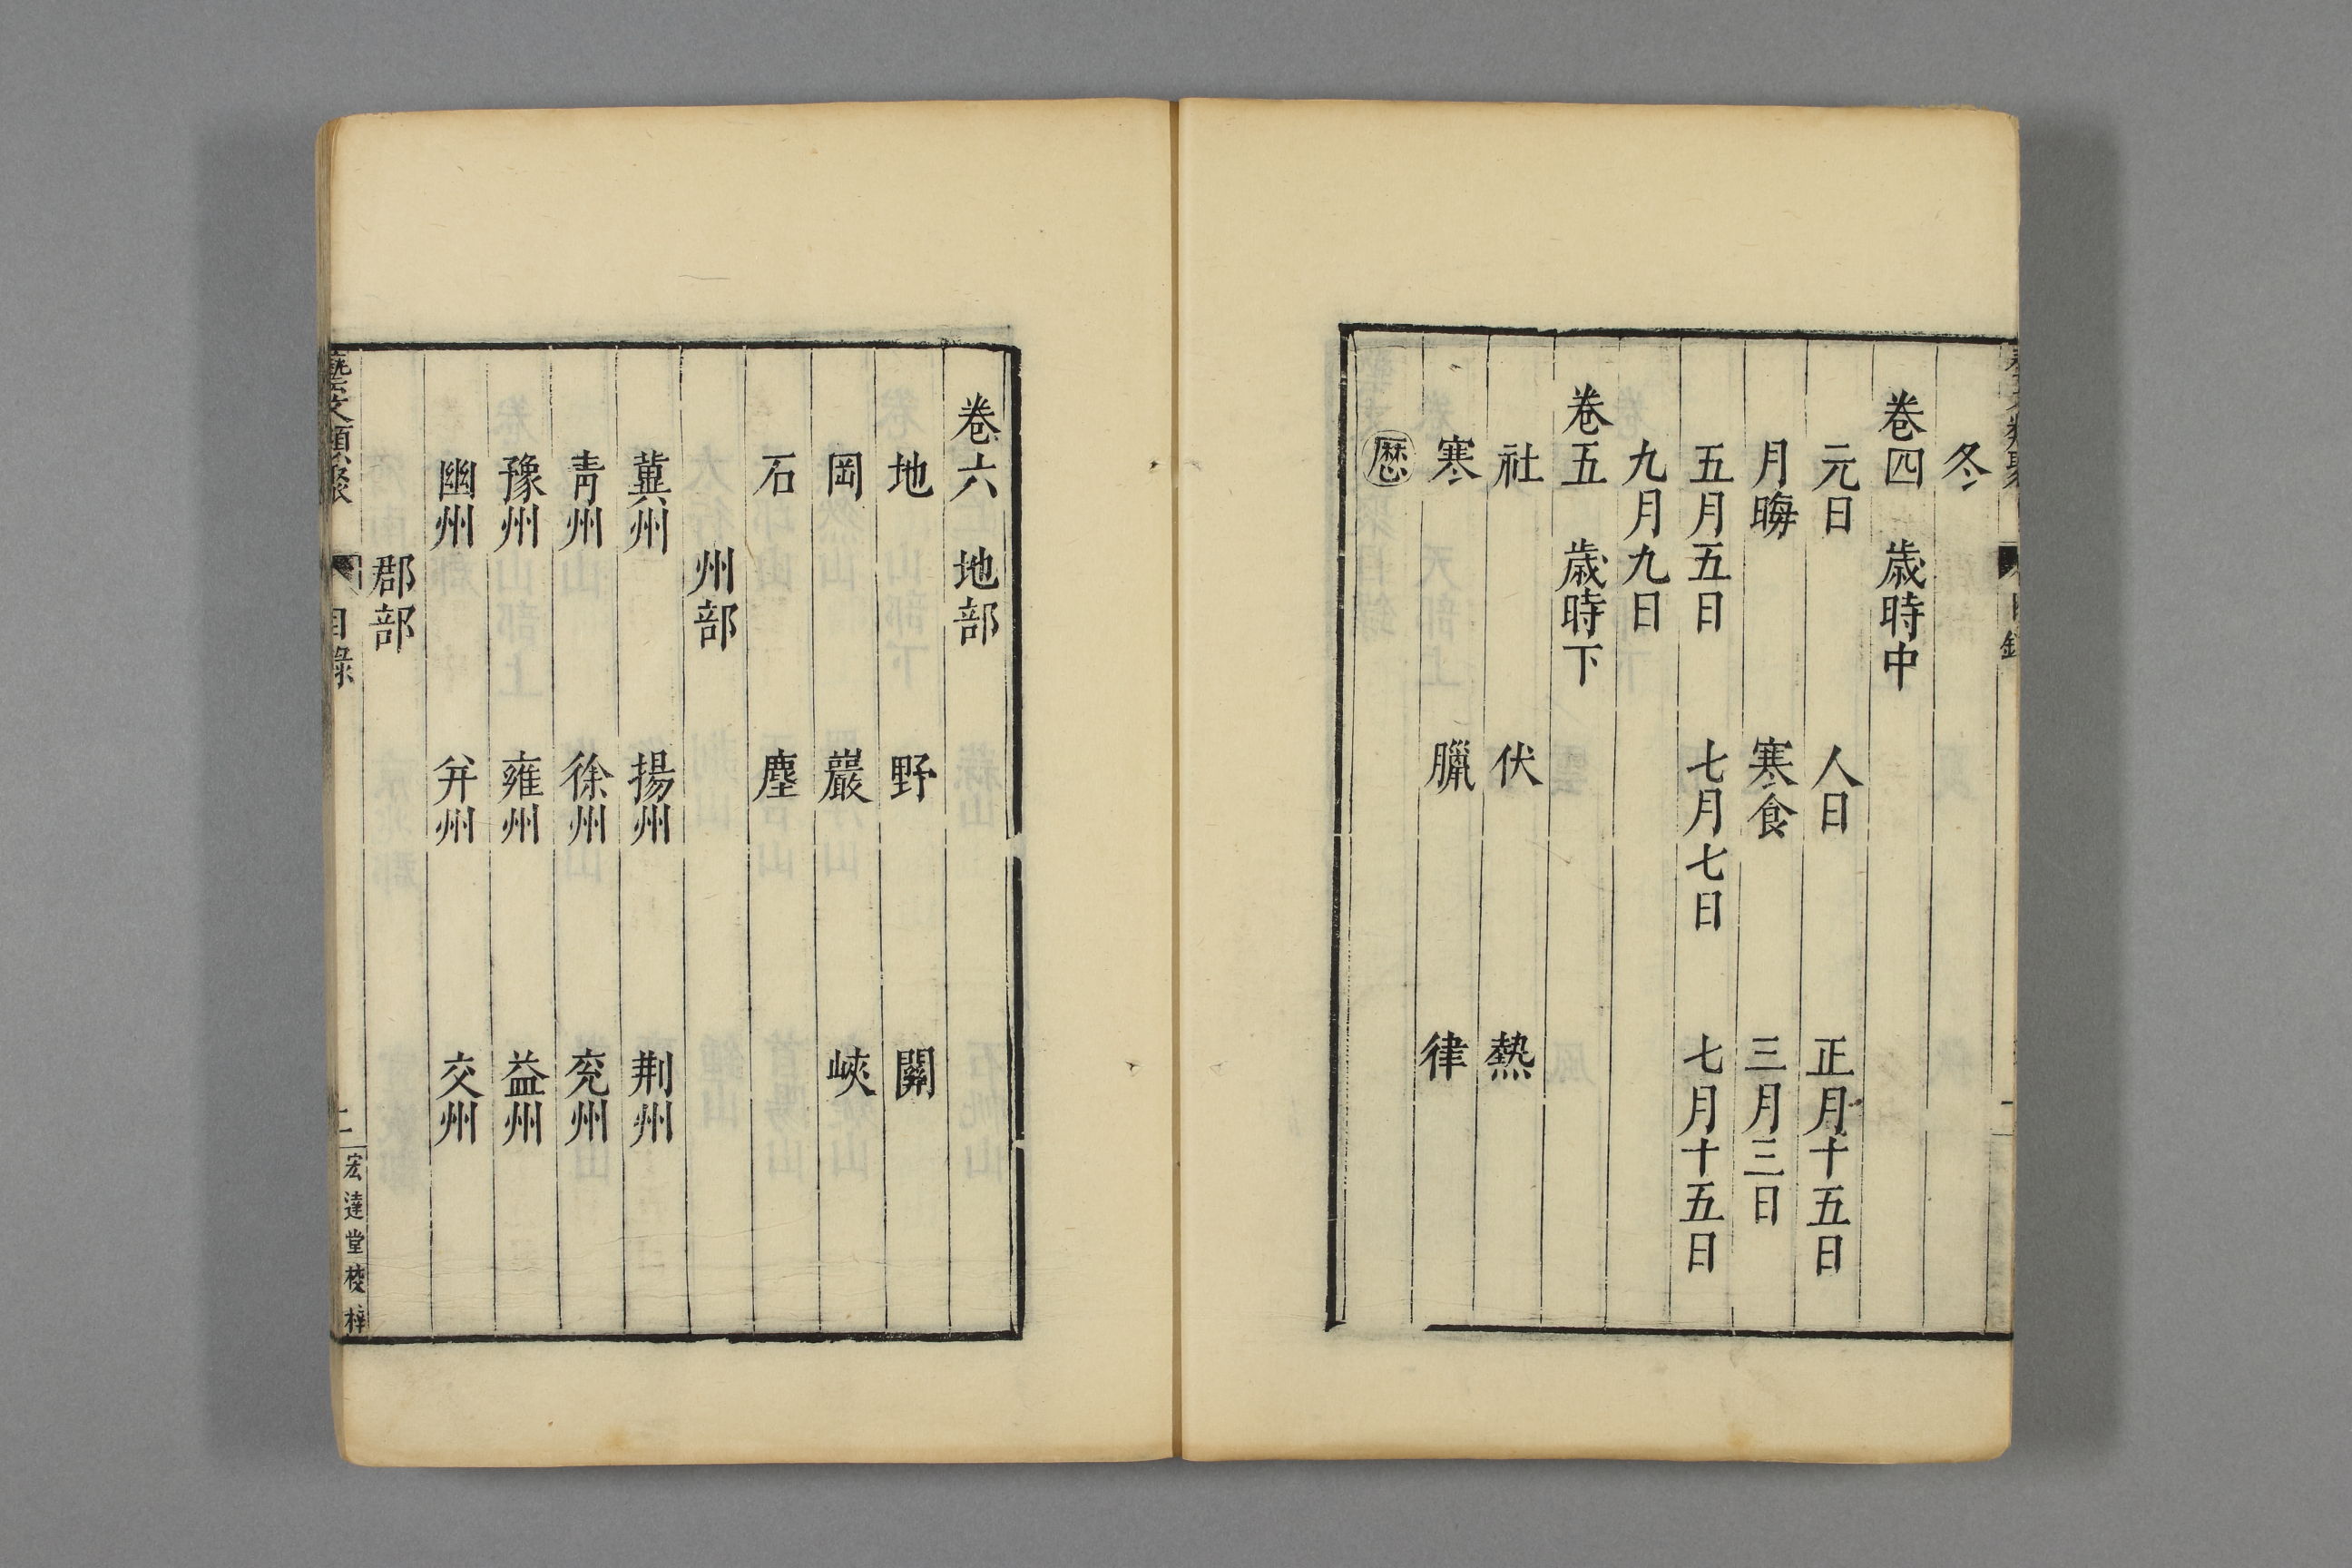 冬
卷四　歲時中
元日　人日　正月十五日
月晦　寒食　三月三日
五月五日　七月七日　七月十五日
九月九日
卷五　歲時下
社　伏　熱
寒　臘　律
曆
卷六　地部
地　野　關
岡　巖　峽
石　塵
州部
冀州　揚州　荆州
靑州　徐州　兖州
豫州　雍州　益州
幽州　并州　交州
郡部
藝文類聚　目錄　二　宏達堂校梓